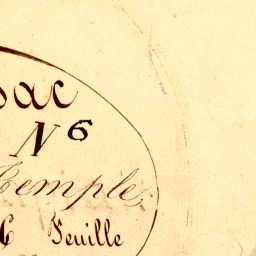 sac
N 6
Temple,
Feuille